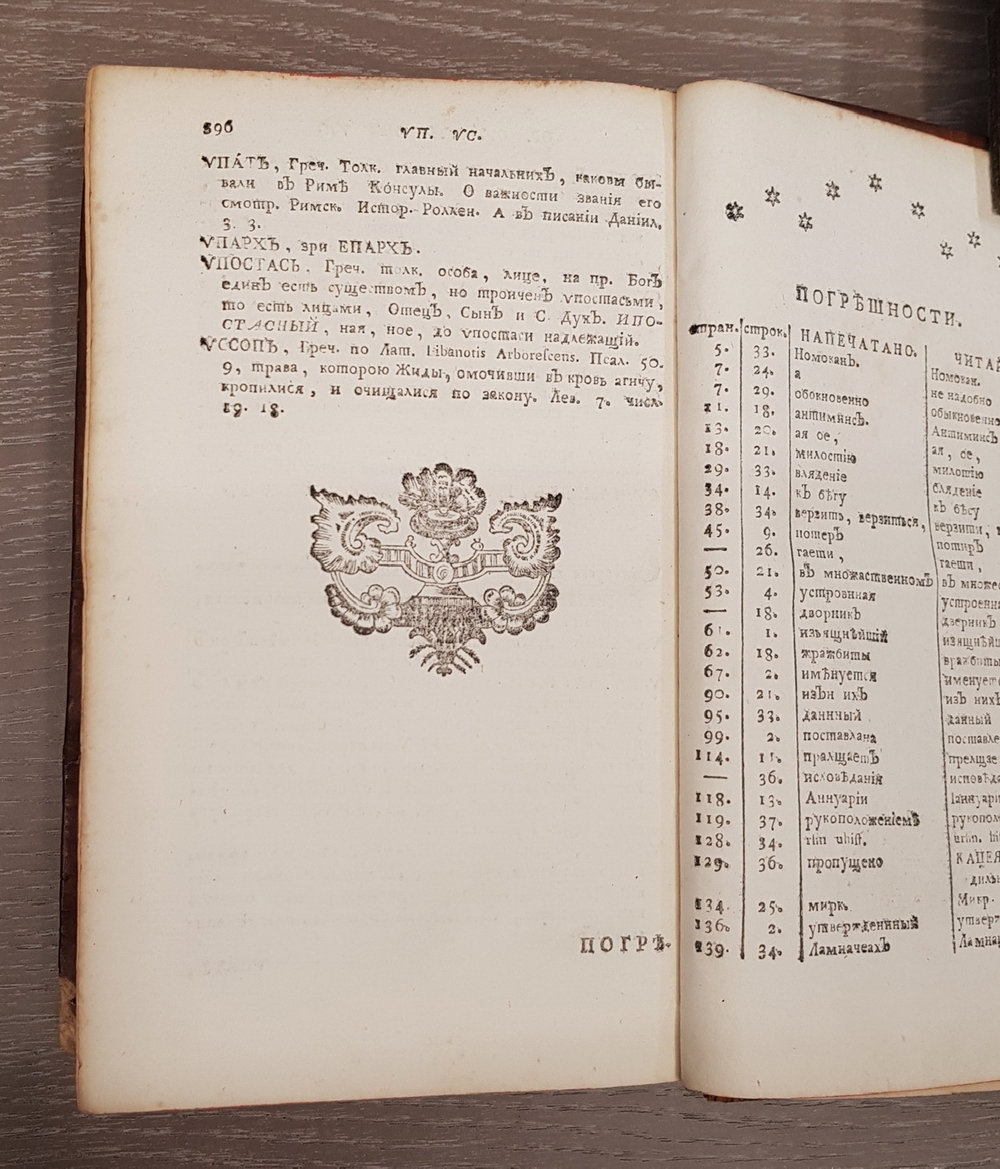 396
ѴП. ѴС.
ѴПА́ТЪ, Греч. Толк. главный начальникЪ, каковы бы-
вали вЪ Римѣ Ко́нсулы. О важности званія его
смотр. Римск. Истор. Роллен. А вЪ писаніи Даніил.
3. 3.
ѴПАРХЪ, зри ЕПАРХЪ.
ѴПОСТАСЬ, Греч. толк. особа, лице, на пр. БогЪ
единЪ есть существомЪ, но троиченЪ ѵпостасьми,
то есть лицами, ОтецЪ, СынЪ и С. ДухЪ. ИПО-
СТАСНЫЙ, ная, ное, до ѵпостаси надлежащій.
ѴССОПЪ, Греч. по Лат. Libanotis Arborefcens. Псал. 50.
9, трава, которою Жиды, омочивши вЪ кровь агнчу,
кропилися, и очищалися по закону. Лев. 7. числ.
19. 18.
ПОГРѢ-
ПОГРѢШНОСТИ.
стран. строк. НАПЕЧАТАНО. ЧИТАЙ
5. 33. НомоканЪ. Номокан.
7. 24. а не надобно
7. 29. обокновенно обыкновенно
11. 18. антиминсЪ. АнтиминсЪ
13. 20. ая ое, ая, ое,
18. 21. милостію милостію
29. 33. вляденіе бляденіе
34. 14. кЪ бѣгу кЪ бѣсу
38. 34. верзить, верзиться, верзити,
45. 9. нотерЪ потирЪ
— 26. гаети, гаеши,
50. 21. вЪ множаственномЪ вЪ множес
53. 4. устровнная устроенна
— 18. дворникЪ дверникЪ
61. 1. изьящнѣйшій изящнѣйш
62. 18. жражбиты вражбиты
67. 2. имѣнуется именуетс
90. 21. изЪн ихЪ изЪ нихЪ
95. 33. даннчый данный
99. 2. поставлана поставле
114. 11. пралщаетЪ прелщае
— 36. исховѣданія исповѣда
118. 13. Аннуаріи Іаннуари
119. 37. рукоположеніемЪ рукопол
128. 34. ubift.
129. 36. пропущено КАЦЕЯ
диль
134. 25. мирк. Микр.
136. 2. утвержденнный утверж
239. 34. ЛамначеахЪ Ламна